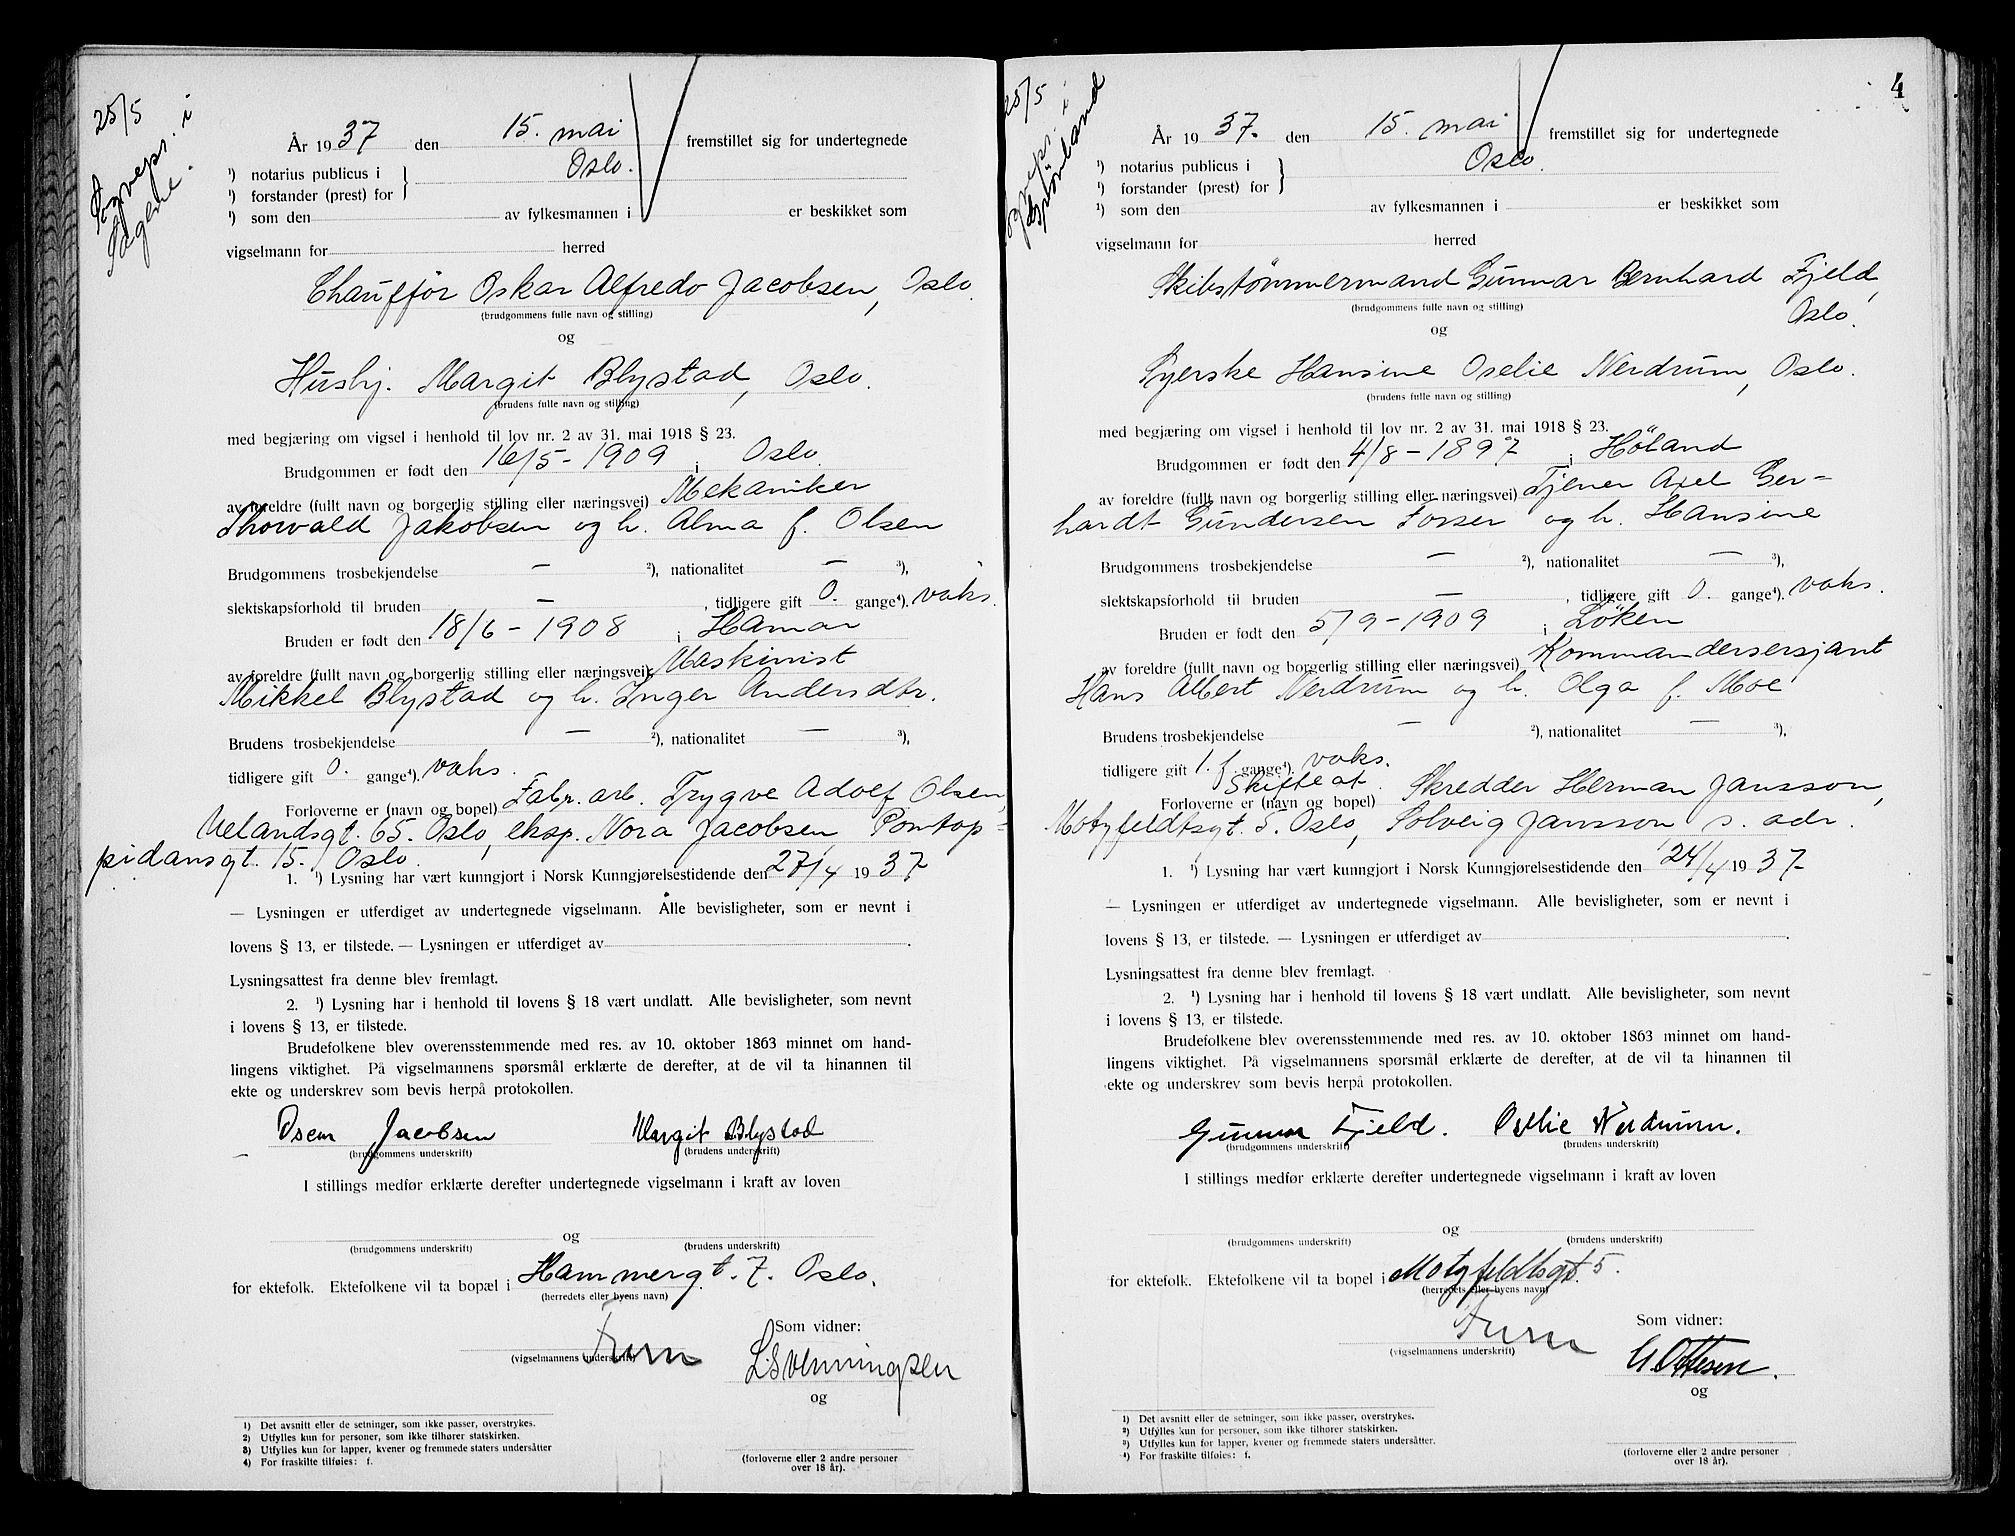 25/5
Sogneps. i
Sagene.
År 1937 den 15. mai fremstillet sig for undertegnede
¹) notarius publicus i
¹) forstander (prest) for } Oslo.
¹) som den av fylkesmannen i er beskikket som
vigselmann for herred
Chauffør Oskar Alfredo Jacobsen, Oslo.
(brudgommens fulle navn og stilling)
og
Hushj. Margit Blystad, Oslo.
(brudens fulle navn og stilling)
med begjæring om vigsel i henhold til lov nr. 2 av 31. mai 1918 § 23.
Brudgommen er født den 16/5-1909 i Oslo.
av foreldre (fullt navn og borgerlig stilling eller næringsvei) Mekaniker
Thorvald Jakobsen og h. Alma f. Olsen
Brudgommens trosbekjendelse — ²), nationalitet — ³),
slektskapsforhold til bruden — , tidligere gift 0. gange⁴). voks.
Bruden er født den 18/6-1908 i Hamar
av foreldre (fullt navn og borgerlig stilling eller næringsvei) Maskinist
Mikkel Blystad og h. Inger Andersdtr.
Brudens trosbekjendelse — ²), nationalitet — ³),
tidligere gift 0. gange⁴). voks.
Forloverne er (navn og bopel) Fabr. arb. Trygve Adolf Olsen,
Uelandsgt. 65. Oslo, eksp. Nora Jacobsen, Pontop-
pidansgt. 15. Oslo.
1. ¹) Lysning har vært kunngjort i Norsk Kunngjørelsestidende den 27/4 1937
— Lysningen er utferdiget av undertegnede vigselmann. Alle bevisligheter, som er nevnt i
lovens § 13, er tilstede. — Lysningen er utferdiget av .
Lysningsattest fra denne blev fremlagt.
2. ¹) Lysning har i henhold til lovens § 18 vært undlatt. Alle bevisligheter, som nevnt
i lovens § 13, er tilstede.
Brudefolkene blev overensstemmende med res. av 10. oktober 1863 minnet om hand-
lingens viktighet. På vigselmannens spørsmål erklærte de derefter, at de vil ta hinannen til
ekte og underskrev som bevis herpå protokollen.
Oscar Jacobsen Margit Blystad
(brudgommens underskrift) (brudens underskrift)
I stillings medfør erklærte derefter undertegnede vigselmann i kraft av loven
og
(brudgommens underskrift) (brudens underskrift)
for ektefolk. Ektefolkene vil ta bopæl i Hammergt. 7. Oslo.
(herredets eller byens navn)
Som vidner:
(vigselmannens underskrift) L. Svenningsen
og
1) Det avsnitt eller de setninger, som ikke passer, overstrykes.
2) Utfylles kun for personer, som ikke tilhører statskirken.
3) Utfylles kun for lapper, kvener og fremmede staters undersåtter
4) For fraskilte tilføies: f.
(forloverne eller 2 andre personer
over 18 år).
4
25/5
Sogneps. i
Grønland
År 1937. den 15. mai fremstillet sig for undertegnede
¹) notarius publicus i
¹) forstander (prest) for } Oslo.
¹) som den av fylkesmannen i er beskikket som
vigselmann for herred
Skibstømmermand Gunnar Bernhard Fjeld,
Oslo.
(brudgommens fulle navn og stilling)
og
Syerske Hansine Oselie Nerdrum, Oslo.
(brudens fulle navn og stilling)
med begjæring om vigsel i henhold til lov nr. 2 av 31. mai 1918 § 23.
Brudgommen er født den 4/8-1897 i Høland
av foreldre (fullt navn og borgerlig stilling eller næringsvei) Tjener Axel Ger-
hardt Gundersen Fosser og h. Hansine
Brudgommens trosbekjendelse — ²), nationalitet — ³),
slektskapsforhold til bruden — , tidligere gift 0. gange⁴). voks.
Bruden er født den 5/9-1909 i Løken
av foreldre (fullt navn og borgerlig stilling eller næringsvei) Kommandersersjant
Hans Albert Nerdrum og h. Olga f. Moe
Brudens trosbekjendelse — ²), nationalitet — ³),
tidligere gift 1. f. gange⁴). voks.
Skifteat.
Forloverne er (navn og bopel) Skredder Herman Jansson,
Motzfeldtsgt. 5. Oslo, Solveig Jansson s. adr.
1. ¹) Lysning har vært kunngjort i Norsk Kunngjørelsestidende den 24/4 1937-
— Lysningen er utferdiget av undertegnede vigselmann. Alle bevisligheter, som er nevnt i
lovens § 13, er tilstede. — Lysningen er utferdiget av .
Lysningsattest fra denne blev fremlagt.
2. ¹) Lysning har i henhold til lovens § 18 vært undlatt. Alle bevisligheter, som nevnt
i lovens § 13, er tilstede.
Brudefolkene blev overensstemmende med res. av 10. oktober 1863 minnet om hand-
lingens viktighet. På vigselmannens spørsmål erklærte de derefter, at de vil ta hinannen til
ekte og underskrev som bevis herpå protokollen.
Gunnar Fjeld. Oselie Nerdrum.
(brudgommens underskrift) (brudens underskrift)
I stillings medfør erklærte derefter undertegnede vigselmann i kraft av loven
og
(brudgommens underskrift) (brudens underskrift)
for ektefolk. Ektefolkene vil ta bopel i Motzfeldtsgt. 5.
(herredets eller byens navn)
Som vidner:
(vigselmannens underskrift) Ottesen.
og
1) Det avsnitt eller de setninger, som ikke passer, overstrykes.
2) Utfylles kun for personer, som ikke tilhører statskirken.
3) Utfylles kun for lapper, kvener og fremmede staters undersåtter.
4) For fraskilte tilføies: f.
(forloverne eller 2 andre personer
over 18 år).